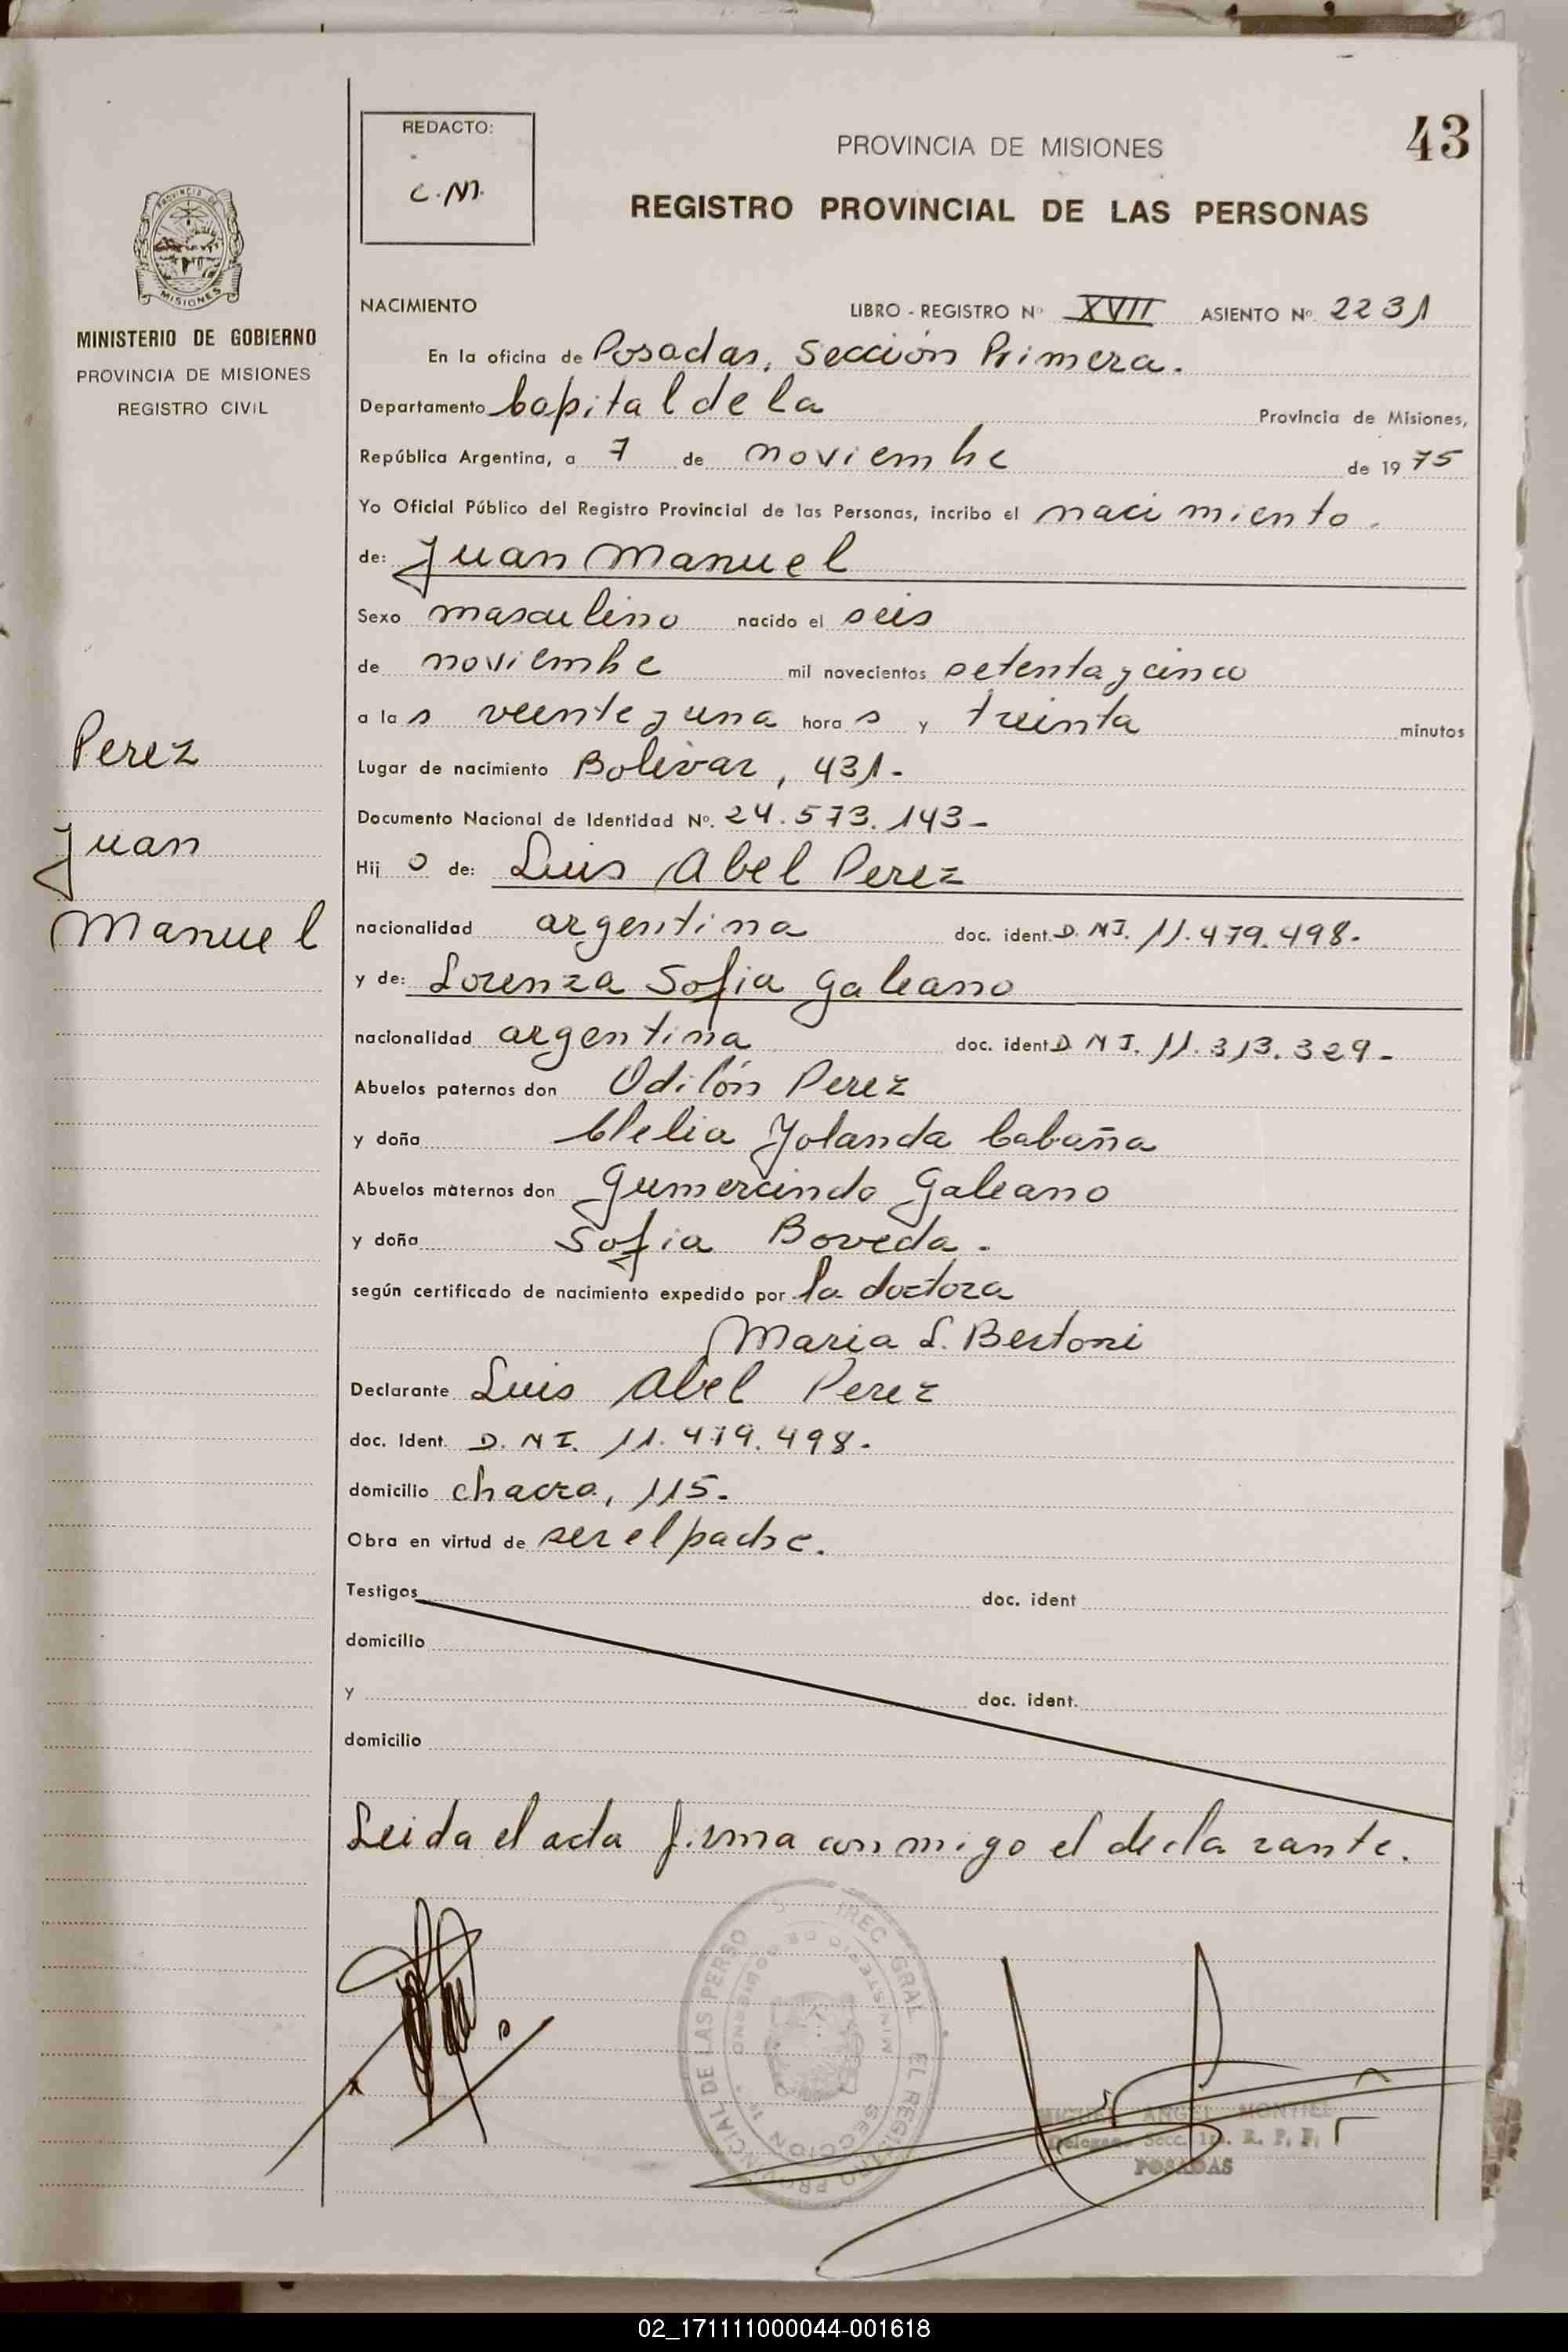 REDACTO:
C.M.
PROVINCIA DE MISIONES
43
REGISTRO PROVINCIAL DE LAS PERSONAS
MISIONES
MINISTERIO DE GOBIERNO
PROVINCIA DE MISIONES
REGISTRO CIVIL
Perez
Juan
Manuel
NACIMIENTO LIBRO - REGISTRO Nº XVII ASIENTO Nº 2231
En la oficina de Posadas, Sección Primera.
Departamento Capital de la Provincia de Misiones,
República Argentina, a 7 de noviembre de 1975
Yo Oficial Público del Registro Provincial de las Personas, incribo el nacimiento.
de: Juan Manuel
Sexo masculino nacido el seis
de noviembre mil novecientos setenta y cinco
a las veinte y una horas y treinta minutos
Lugar de nacimiento Bolivar, 431-
Documento Nacional de Identidad Nº. 24.573.143-
Hijo de: Luis Abel Perez
nacionalidad argentina doc. ident. D.NI. 11.479.498-
y de: Lorenza Sofia Galeano
nacionalidad argentina doc. ident D NI. 11.313.329-
Abuelos paternos don Odilón Perez
y doña Clelia Yolanda Cabaña
Abuelos maternos don Gumercindo Galeano
y doña Sofia Boveda.
según certificado de nacimiento expedido por la doctora
Maria L. Bertoni
Declarante Luis Abel Perez
doc. Ident. D. NI. 11.479.498-
domicilio chacra, 115-
Obra en virtud de ser el padre.
Testigos doc. ident
domicilio
y doc. ident.
domicilio
Leida el acta firma conmigo el declarante.
REGISTRO PROVINCIAL DE LAS PERSO
MINISTERIO DE GOBIERNO
SECCION 1ª
MIGUEL ANGEL MONTIEL
Delegado Secc. 1ra. R. P. P.
POSADAS
02_171111000044-001618